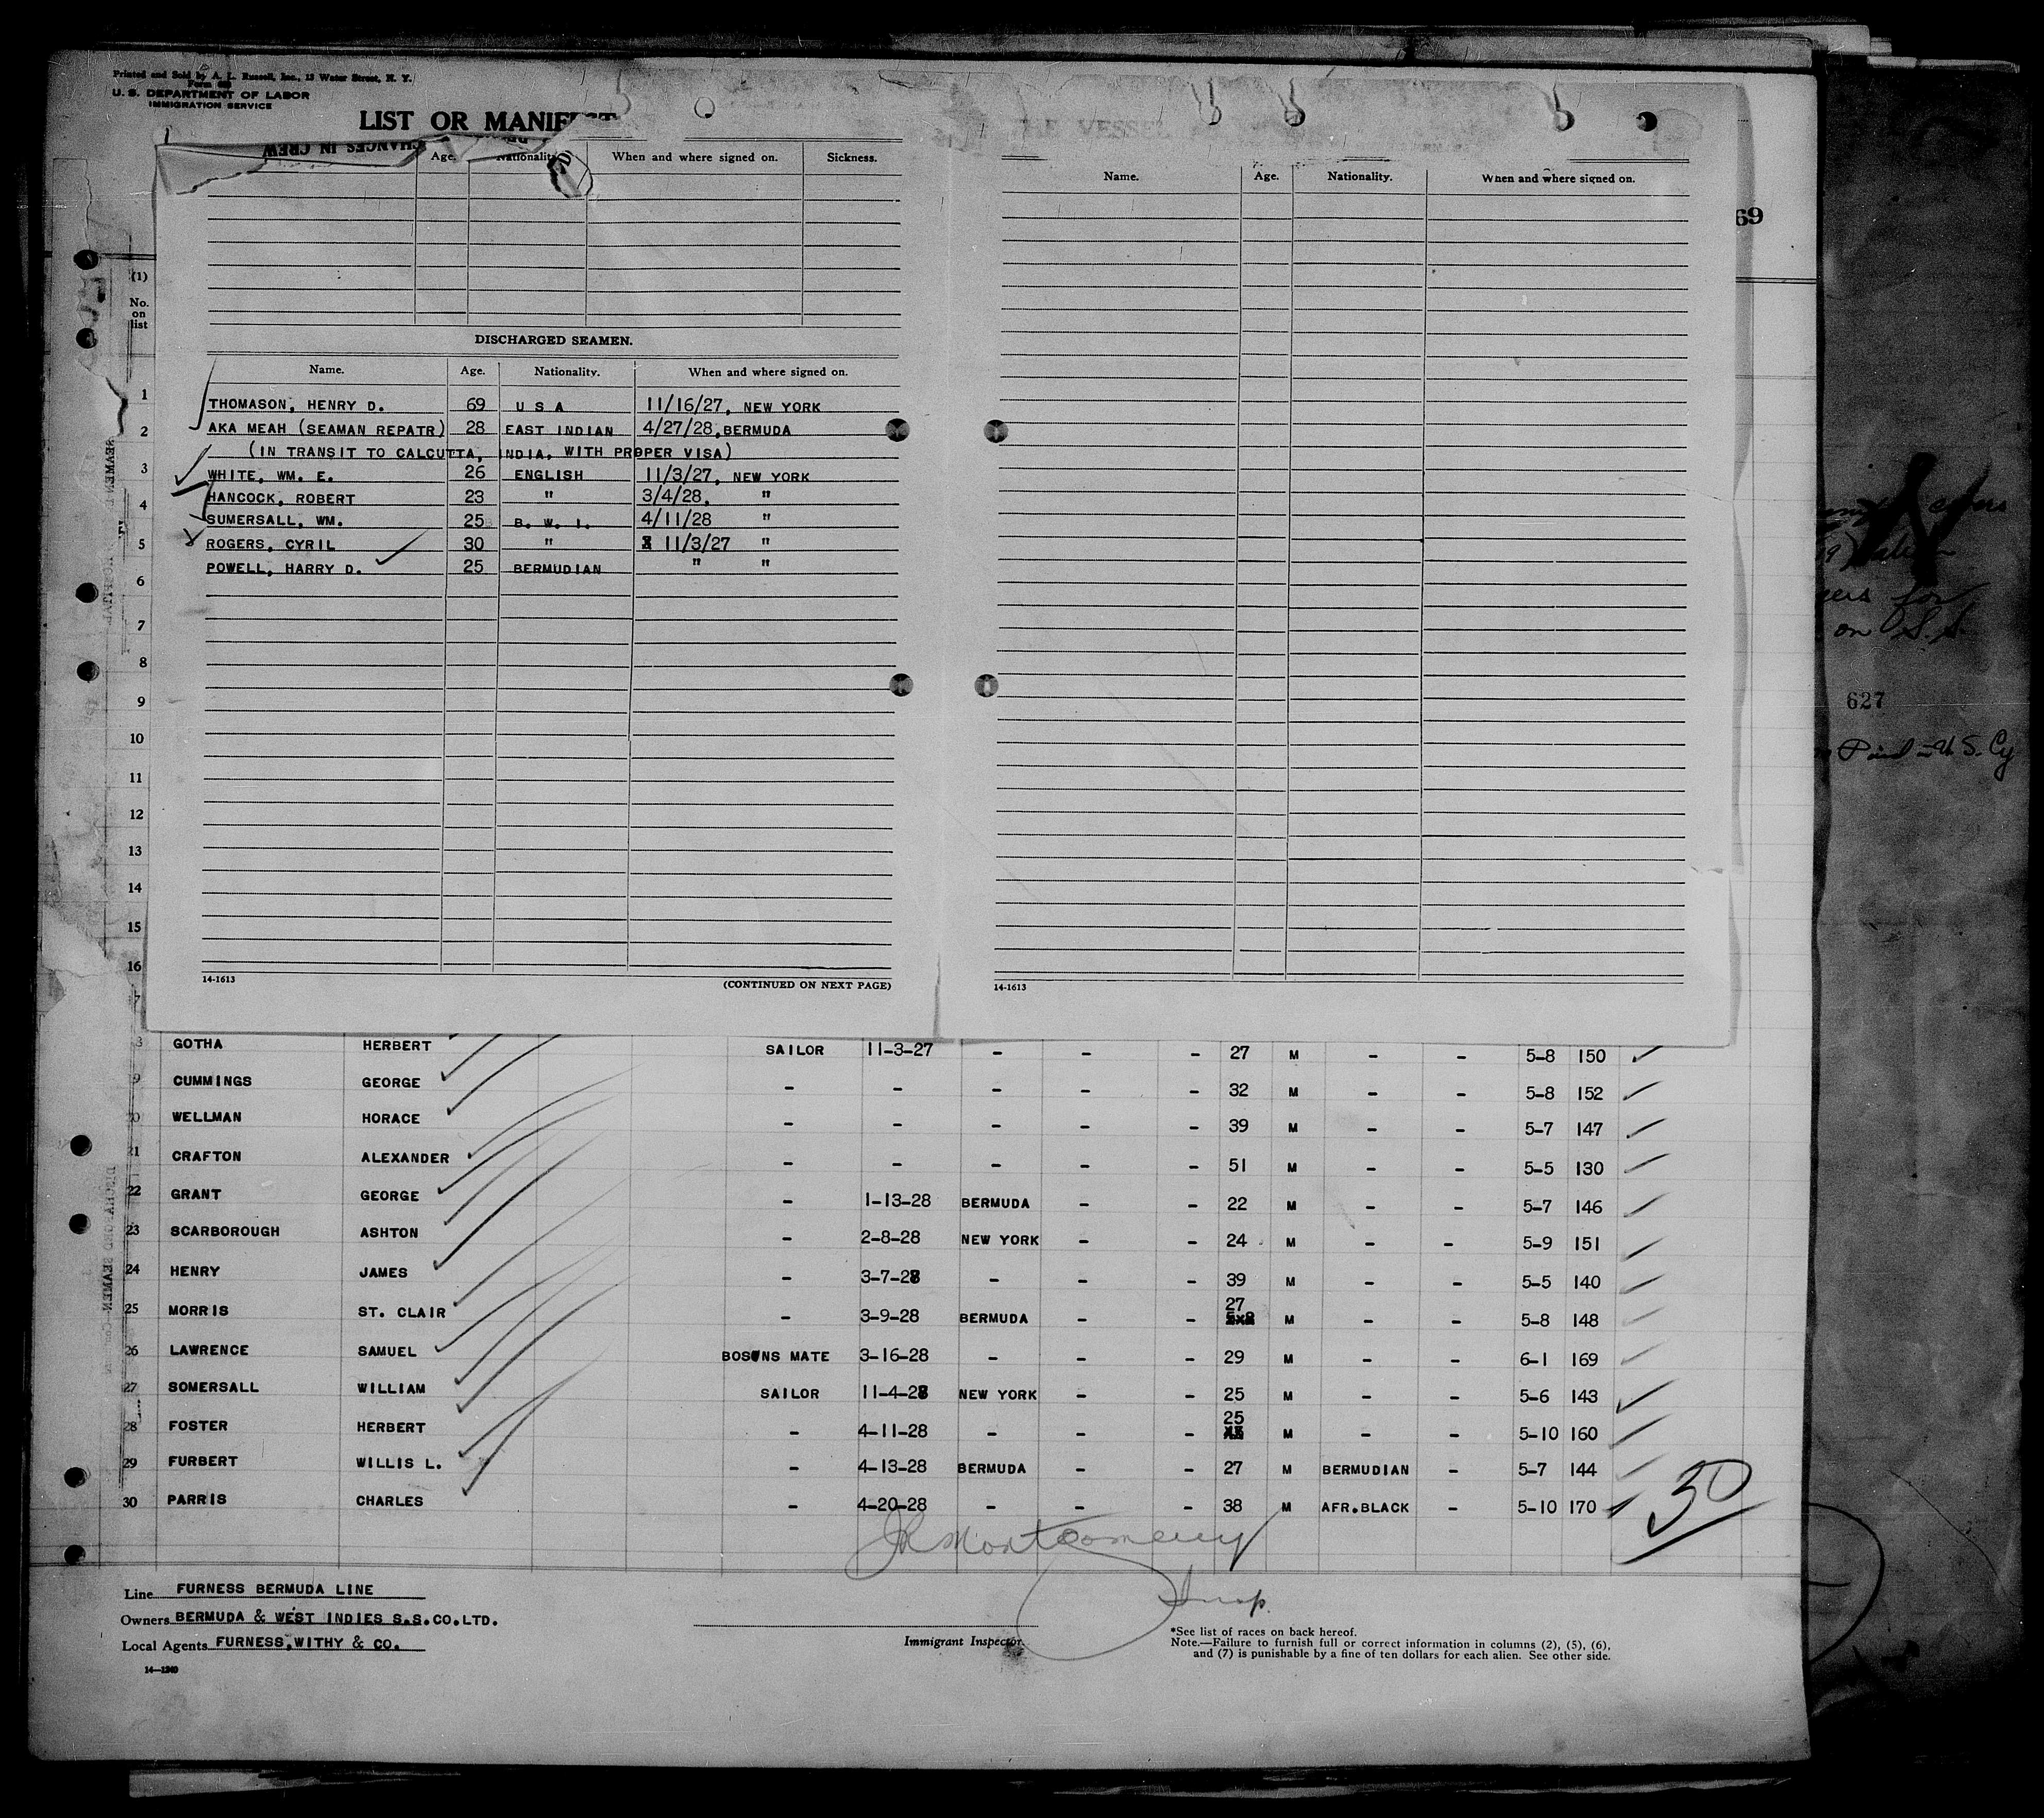 Printed and Sold by A. L. Russell, Inc., 13 Water Street, N. Y.
U. S. DEPARTMENT OF LABOR
IMMIGRATION SERVICE
LIST OR MANIFEST
HE VESSEL
CHANGES IN CREW
Age. Nationality When and where signed on. Sickness.
Name. Age. Nationality. When and where signed on.
69
(1)
No. on list
DISCHARGED SEAMEN.
Name. Age. Nationality. When and where signed on.
1 THOMASON, HENRY D. 69 U S A 11/16/27, NEW YORK
2 AKA MEAH (SEAMAN REPATR) 28 EAST INDIAN 4/27/28, BERMUDA
(IN TRANSIT TO CALCUTTA, INDIA, WITH PROPER VISA)
3 WHITE, WM. E. 26 ENGLISH 11/3/27, NEW YORK
HANCOCK, ROBERT 23 " 3/4/28, "
4 SUMERSALL, WM. 25 B. W. I. 4/11/28 "
5 ROGERS, CYRIL 30 " 11/3/27 "
POWELL, HARRY D. 25 BERMUDIAN " "
6
7
8
9
10
11
12
13
14
15
16
14-1613 (CONTINUED ON NEXT PAGE) 14-1613
for
on S.S.
627
Paid - U.S. Cy
GOTHA HERBERT SAILOR 11-3-27 - - - 27 M - - 5-8 150
9 CUMMINGS GEORGE - - - - - 32 M - - 5-8 152
20 WELLMAN HORACE - - - - - 39 M - - 5-7 147
21 CRAFTON ALEXANDER - - - - - 51 M - - 5-5 130
22 GRANT GEORGE - 1-13-28 BERMUDA - - 22 M - - 5-7 146
23 SCARBOROUGH ASHTON - 2-8-28 NEW YORK - - 24 M - - 5-9 151
24 HENRY JAMES - 3-7-28 - - - 39 M - - 5-5 140
25 MORRIS ST. CLAIR - 3-9-28 BERMUDA - - 27 M - - 5-8 148
26 LAWRENCE SAMUEL BOSUNS MATE 3-16-28 - - - 29 M - - 6-1 169
27 SOMERSALL WILLIAM SAILOR 11-4-28 NEW YORK - - 25 M - - 5-6 143
28 FOSTER HERBERT - 4-11-28 - - - 25 M - - 5-10 160
29 FURBERT WILLIS L. - 4-13-28 BERMUDA - - 27 M BERMUDIAN - 5-7 144
30 PARRIS CHARLES - 4-20-28 - - - 38 M AFR.BLACK - 5-10 170
30
JR Montgomery
Insp.
Line FURNESS BERMUDA LINE
Owners BERMUDA & WEST INDIES S.S.CO.LTD.
Local Agents FURNESS, WITHY & CO.
Immigrant Inspector.
*See list of races on back hereof.
Note.—Failure to furnish full or correct information in columns (2), (5), (6),
and (7) is punishable by a fine of ten dollars for each alien. See other side.
14—1240